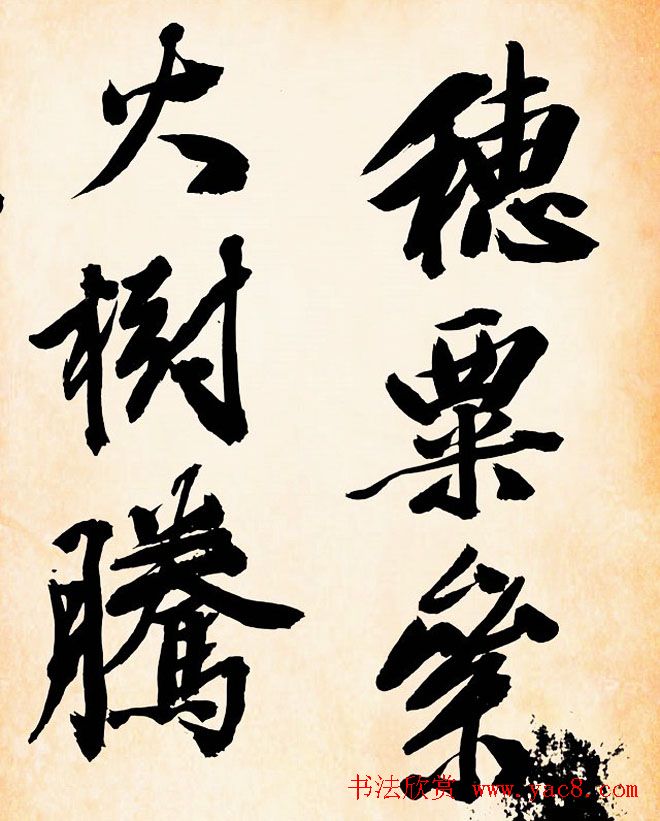 穗粟
火樹騰
书法欣赏 www.yac8.com